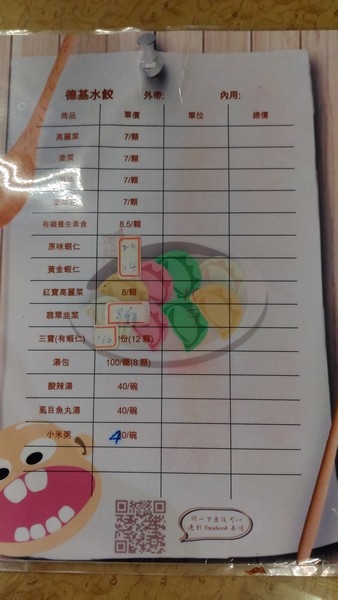 德基水餃 外帶: 內用:
商品 單價 單位 總價
高麗菜 7/顆
韭菜 7/顆
7/顆
7/顆
有機養生素食 8.5/顆
原味蝦仁
黃金蝦仁
紅寶高麗菜 8/顆
翡翠韭菜
三寶(有蝦仁) 份(12顆)
湯包 100/籠(8顆)
酸辣湯 40/碗
虱目魚丸湯 40/碗
小米粥 40/碗